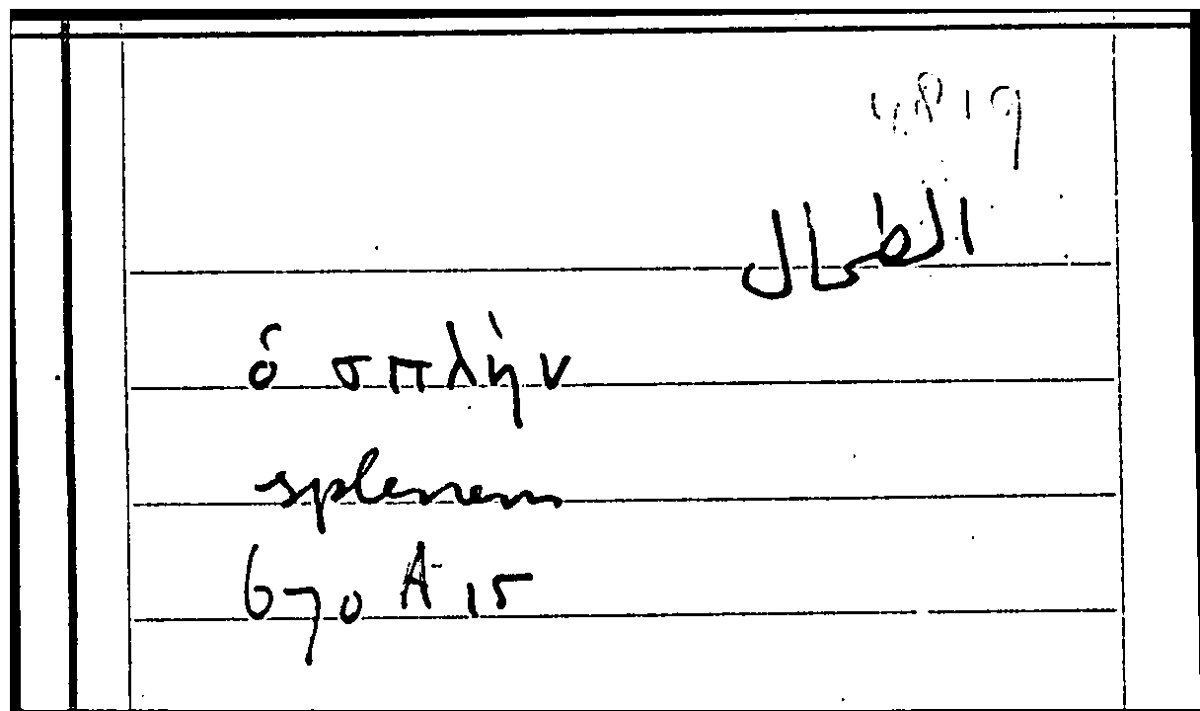 الطحال
ὁ σπλὴν
splenem
670 A 15